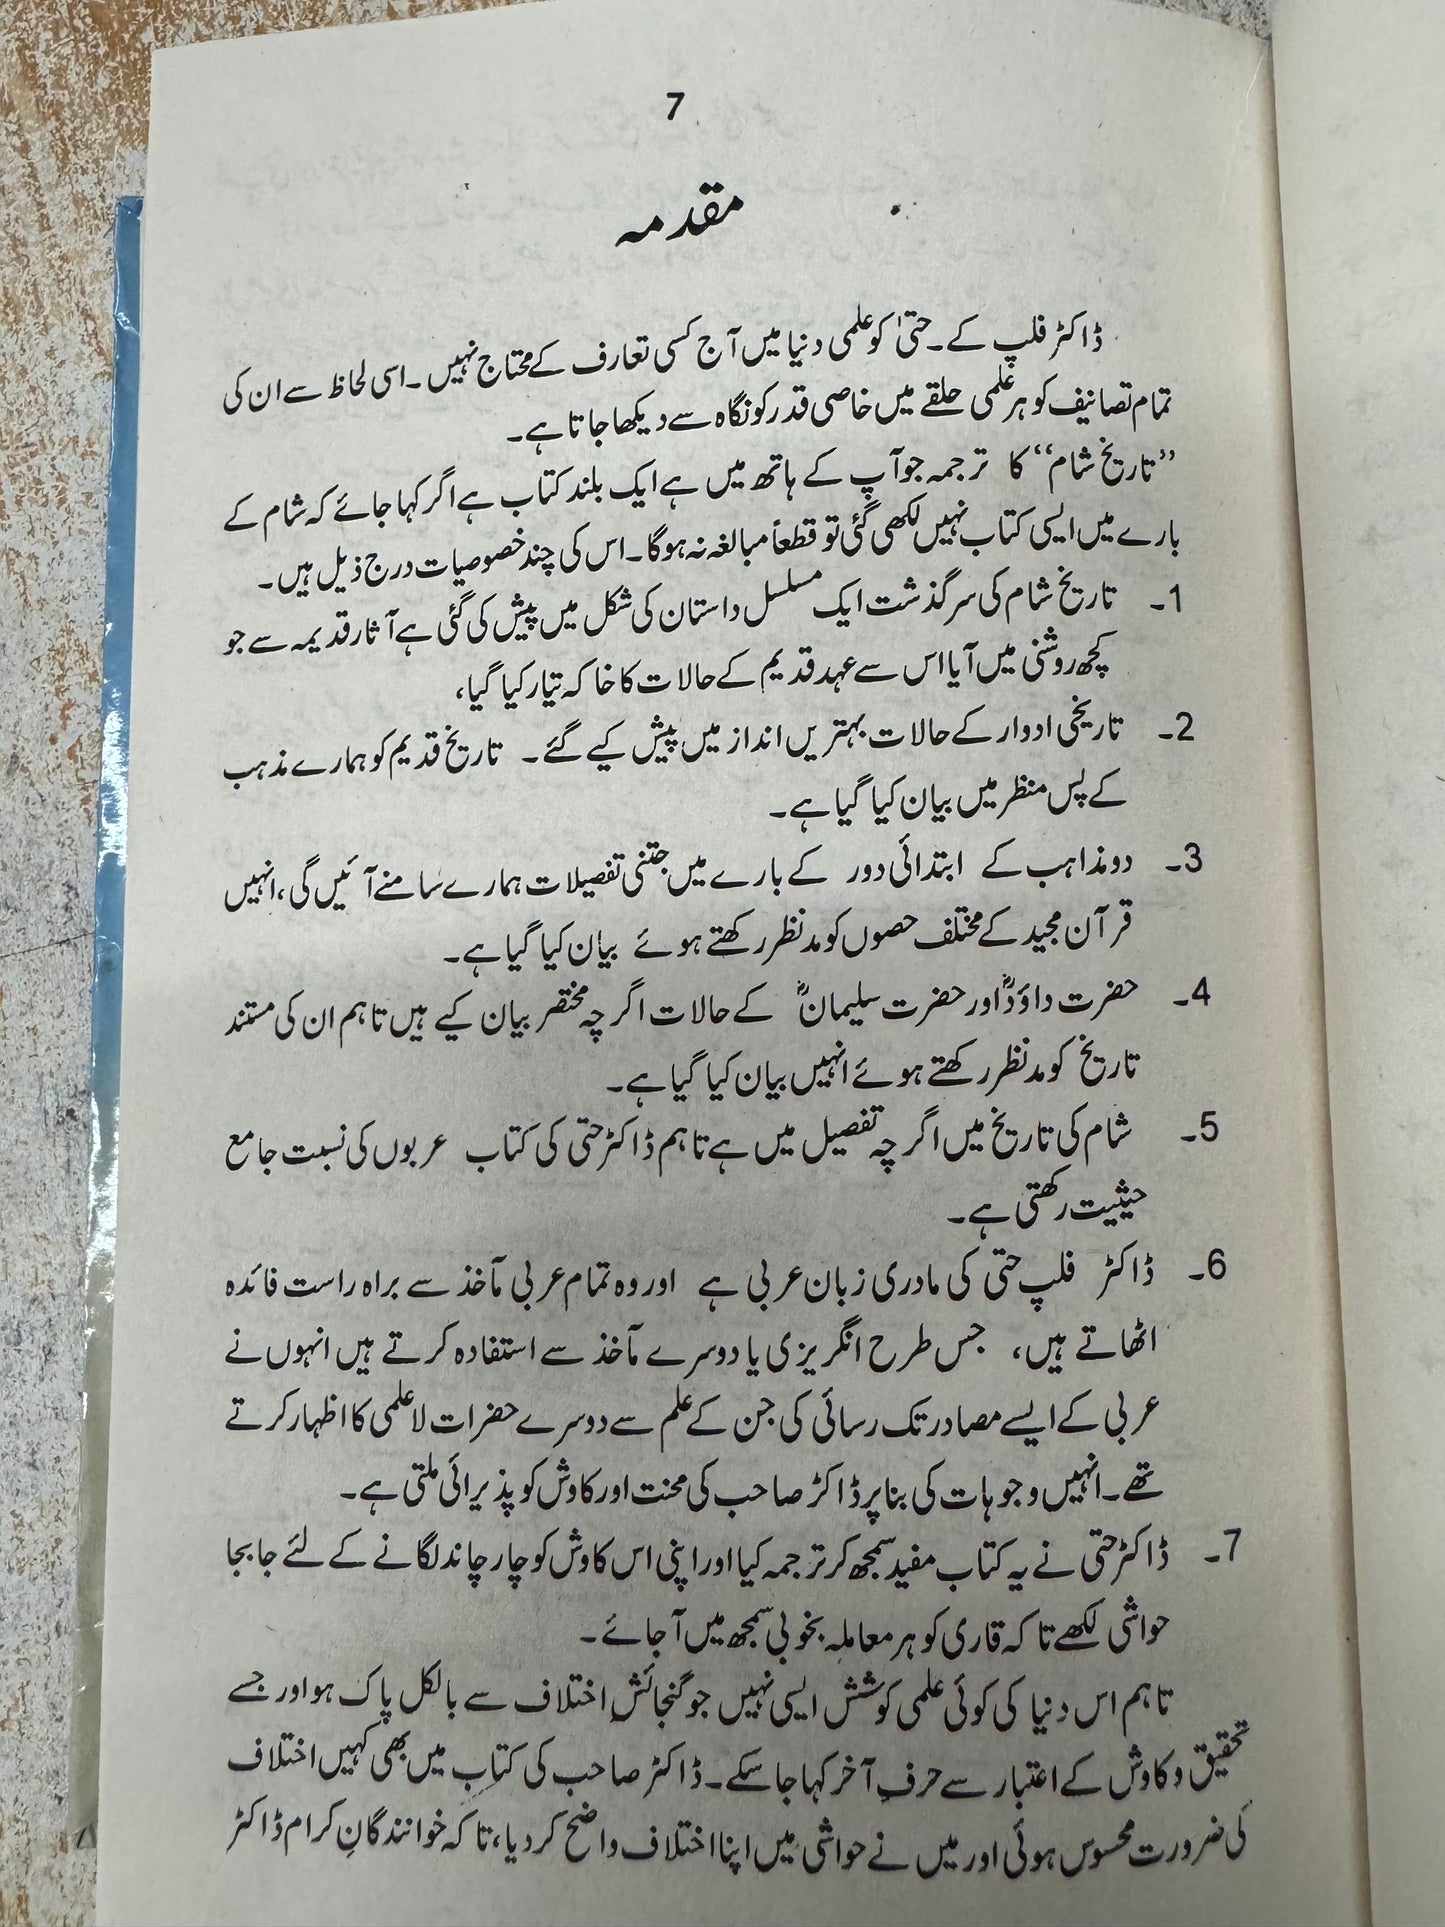 7
مقدمہ
ڈاکٹر فلپ کے۔ حتیٰ کو علمی دنیا میں آج کسی تعارف کے محتاج نہیں۔ اسی لحاظ سے ان کی
تمام تصانیف کو ہر علمی حلقے میں خاصی قدر کو نگاہ سے دیکھا جاتا ہے۔
”تاریخ شام“ کا ترجمہ جو آپ کے ہاتھ میں ہے ایک بلند کتاب ہے اگر کہا جائے کہ شام کے
بارے میں ایسی کتاب نہیں لکھی گئی تو قطعاً مبالغہ نہ ہوگا۔ اس کی چند خصوصیات درج ذیل ہیں۔
1۔ تاریخ شام کی سرگذشت ایک مسلسل داستان کی شکل میں پیش کی گئی ہے آثار قدیمہ سے جو
کچھ روشنی میں آیا اس سے عہد قدیم کے حالات کا خاکہ تیار کیا گیا،
2۔ تاریخی ادوار کے حالات بہتریں انداز میں پیش کیے گئے۔ تاریخ قدیم کو ہمارے مذہب
کے پس منظر میں بیان کیا گیا ہے۔
3۔ دو مذاہب کے ابتدائی دور کے بارے میں جتنی تفصیلات ہمارے سامنے آئیں گی، انہیں
قرآن مجید کے مختلف حصوں کو مدنظر رکھتے ہوئے بیان کیا گیا ہے۔
4۔ حضرت داؤدؑ اور حضرت سلیمانؑ کے حالات اگرچہ مختصر بیان کیے ہیں تاہم ان کی مستند
تاریخ کو مدنظر رکھتے ہوئے انہیں بیان کیا گیا ہے۔
5۔ شام کی تاریخ میں اگرچہ تفصیل میں ہے تاہم ڈاکٹر حتی کی کتاب عربوں کی نسبت جامع
حیثیت رکھتی ہے۔
6۔ ڈاکٹر فلپ حتی کی مادری زبان عربی ہے اور وہ تمام عربی مآخذ سے براہ راست فائدہ
اٹھاتے ہیں، جس طرح انگریزی یا دوسرے مآخذ سے استفادہ کرتے ہیں انہوں نے
عربی کے ایسے مصادر تک رسائی کی جن کے علم سے دوسرے حضرات لاعلمی کا اظہار کرتے
تھے۔ انہیں وجوہات کی بنا پر ڈاکٹر صاحب کی محنت اور کاوش کو پذیرائی ملتی ہے۔
7۔ ڈاکٹر حتی نے یہ کتاب مفید سمجھ کر ترجمہ کیا اور اپنی اس کاوش کو چار چاند لگانے کے لئے جابجا
حواشی لکھے تاکہ قاری کو ہر معاملہ بخوبی سمجھ میں آجائے۔
تاہم اس دنیا کی کوئی علمی کوشش ایسی نہیں جو گنجائشِ اختلاف سے بالکل پاک ہو اور جسے
تحقیق و کاوش کے اعتبار سے حرفِ آخر کہا جا سکے۔ ڈاکٹر صاحب کی کتاب میں بھی کہیں اختلاف
کی ضرورت محسوس ہوئی اور میں نے حواشی میں اپنا اختلاف واضح کر دیا، تاکہ خوانندگانِ کرام ڈاکٹر